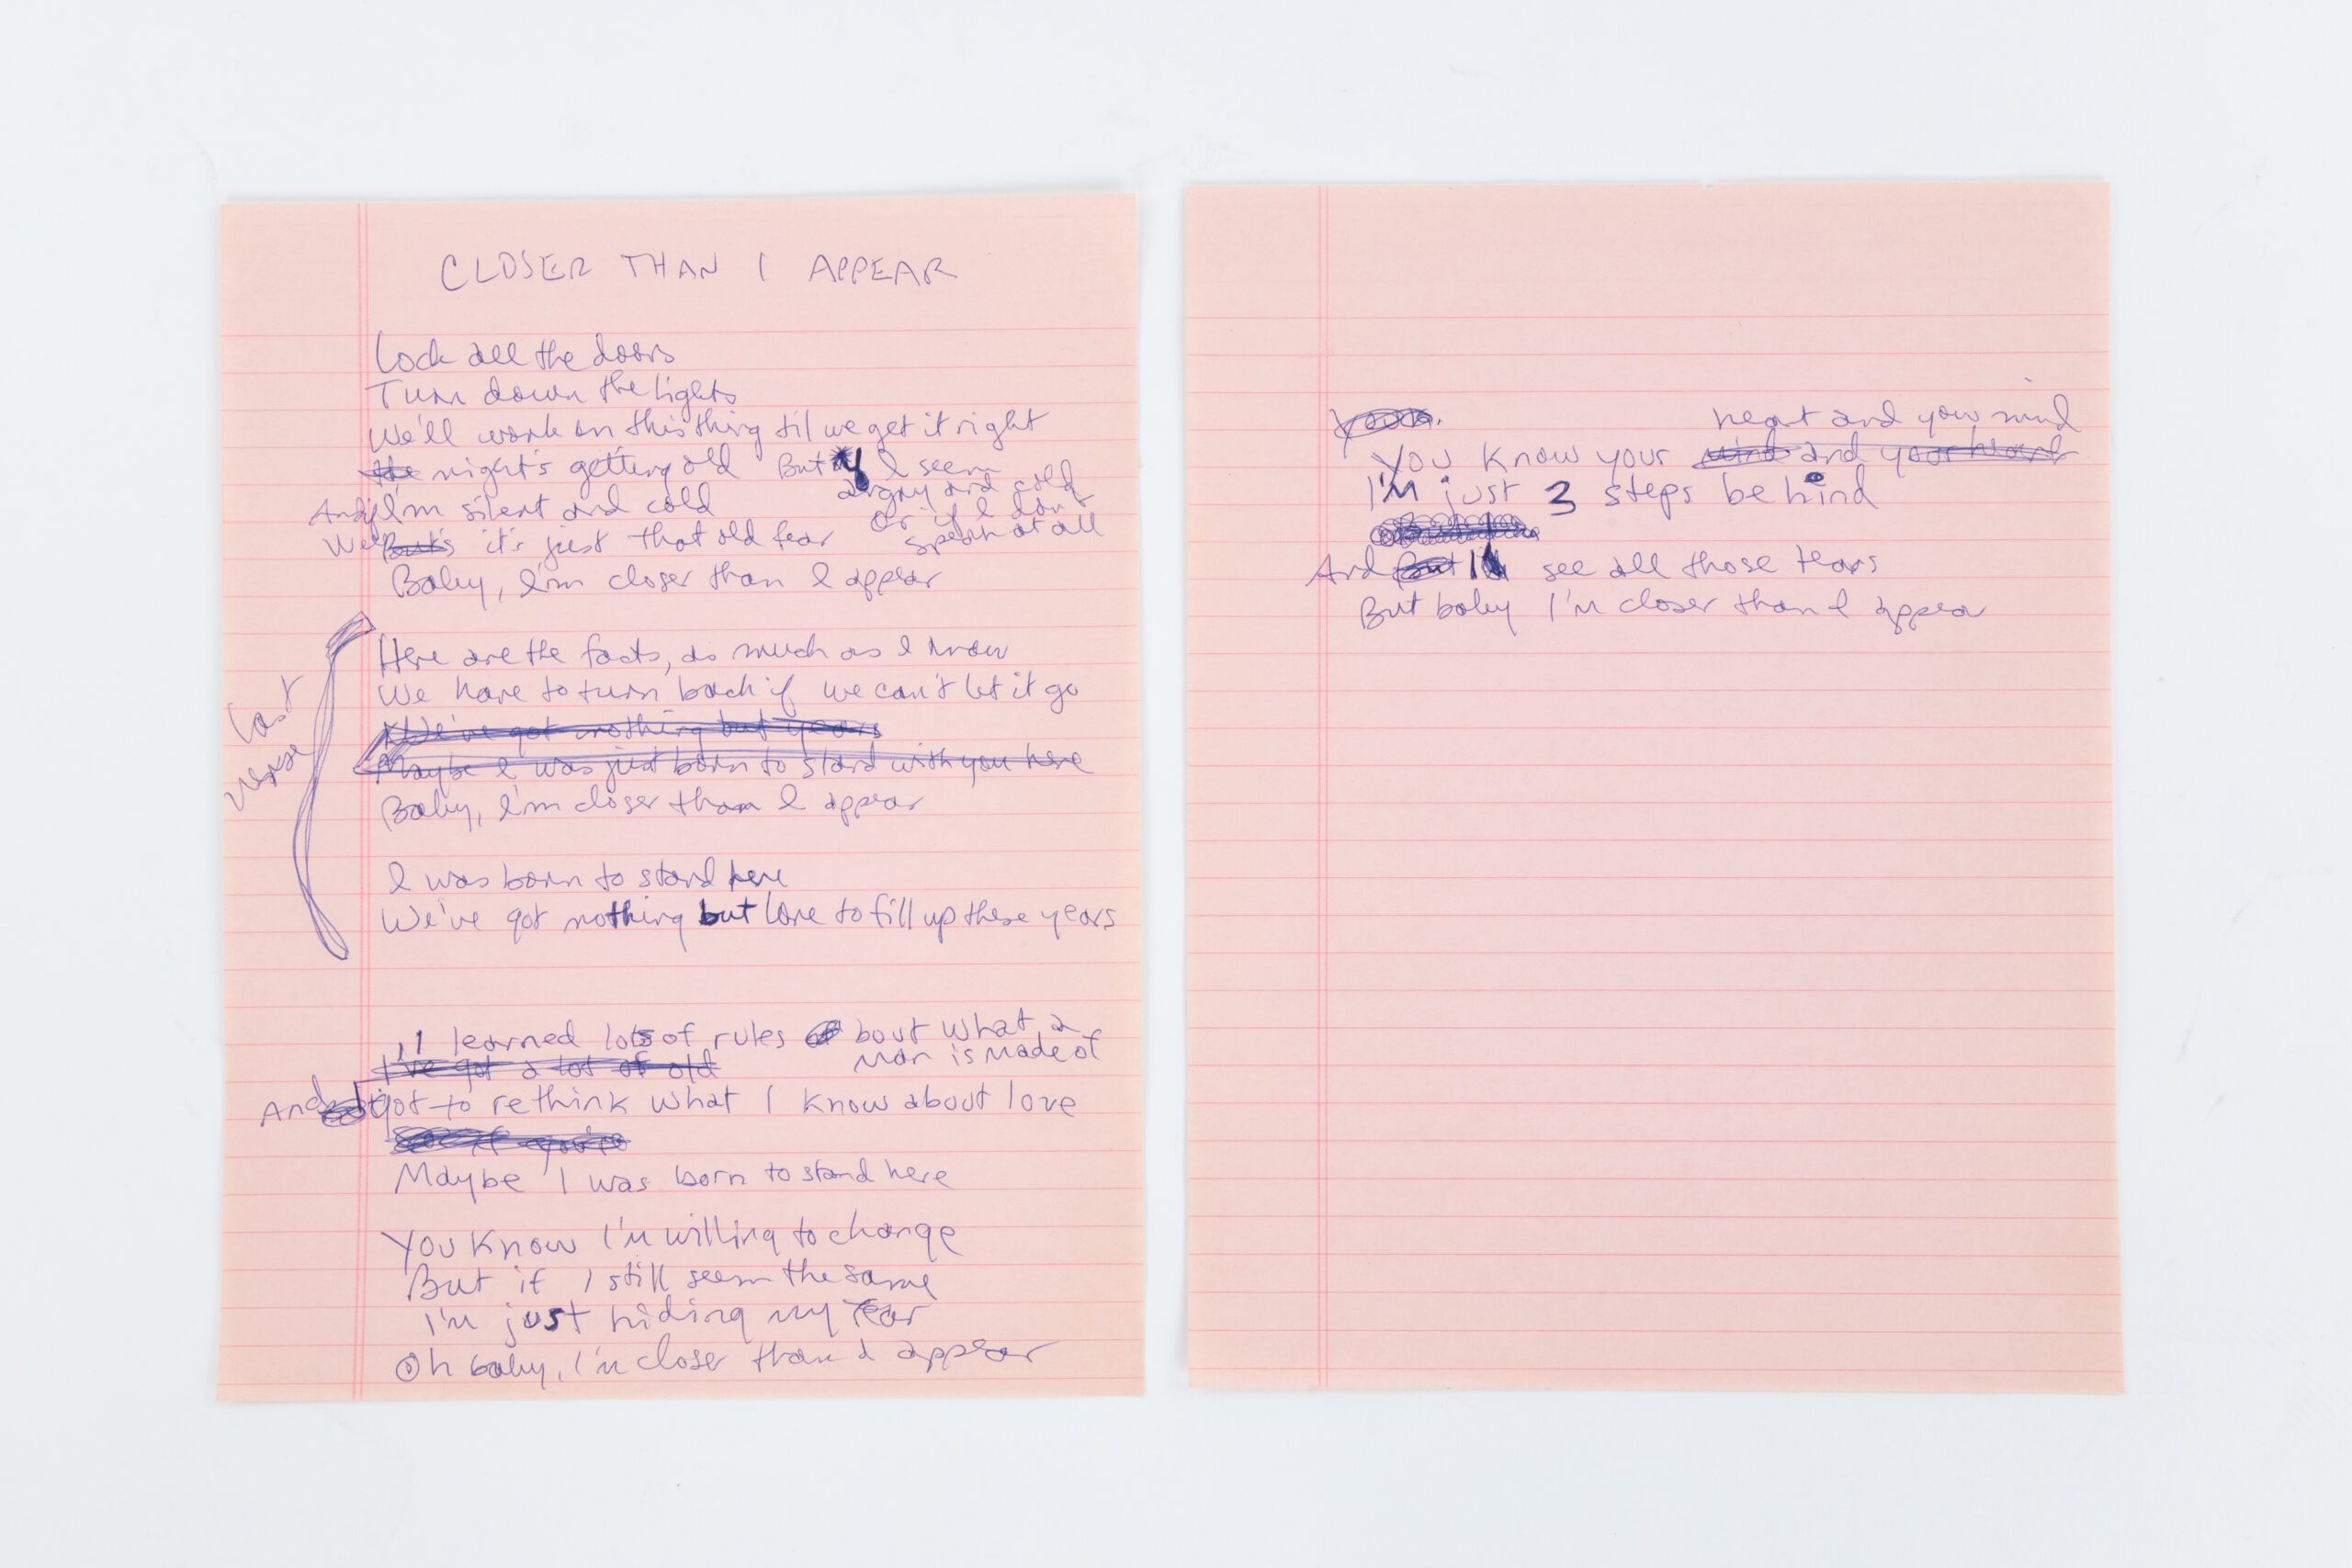 CLOSER THAN I APPEAR
Lock all the doors
Turn down the lights
We'll work on this thing til we get it right
the night's getting old But if I seem
angry and cold
And if I'm silent and cold
Or if I don't
speak at all
Well it's just that old fear
Baby, I'm closer than I appear
last
verse
Here are the facts, as much as I know
We have to turn back if we can't let it go
We've got nothing but years
Maybe I was just born to stand with you here
Baby, I'm closer than I appear
I was born to stand here
We've got nothing but love to fill up these years
I learned lots of rules bout what a
man is made of
I've got a lot of old
And got to rethink what I know about love
you're
Maybe I was born to stand here
You know I'm willing to change
But if I still seem the same
I'm just hiding my fear
Oh baby, I'm closer than I appear
heart and your mind
You know your mind and your heart
I'm just 3 steps behind
And But I see all those tears
But baby I'm closer than I appear